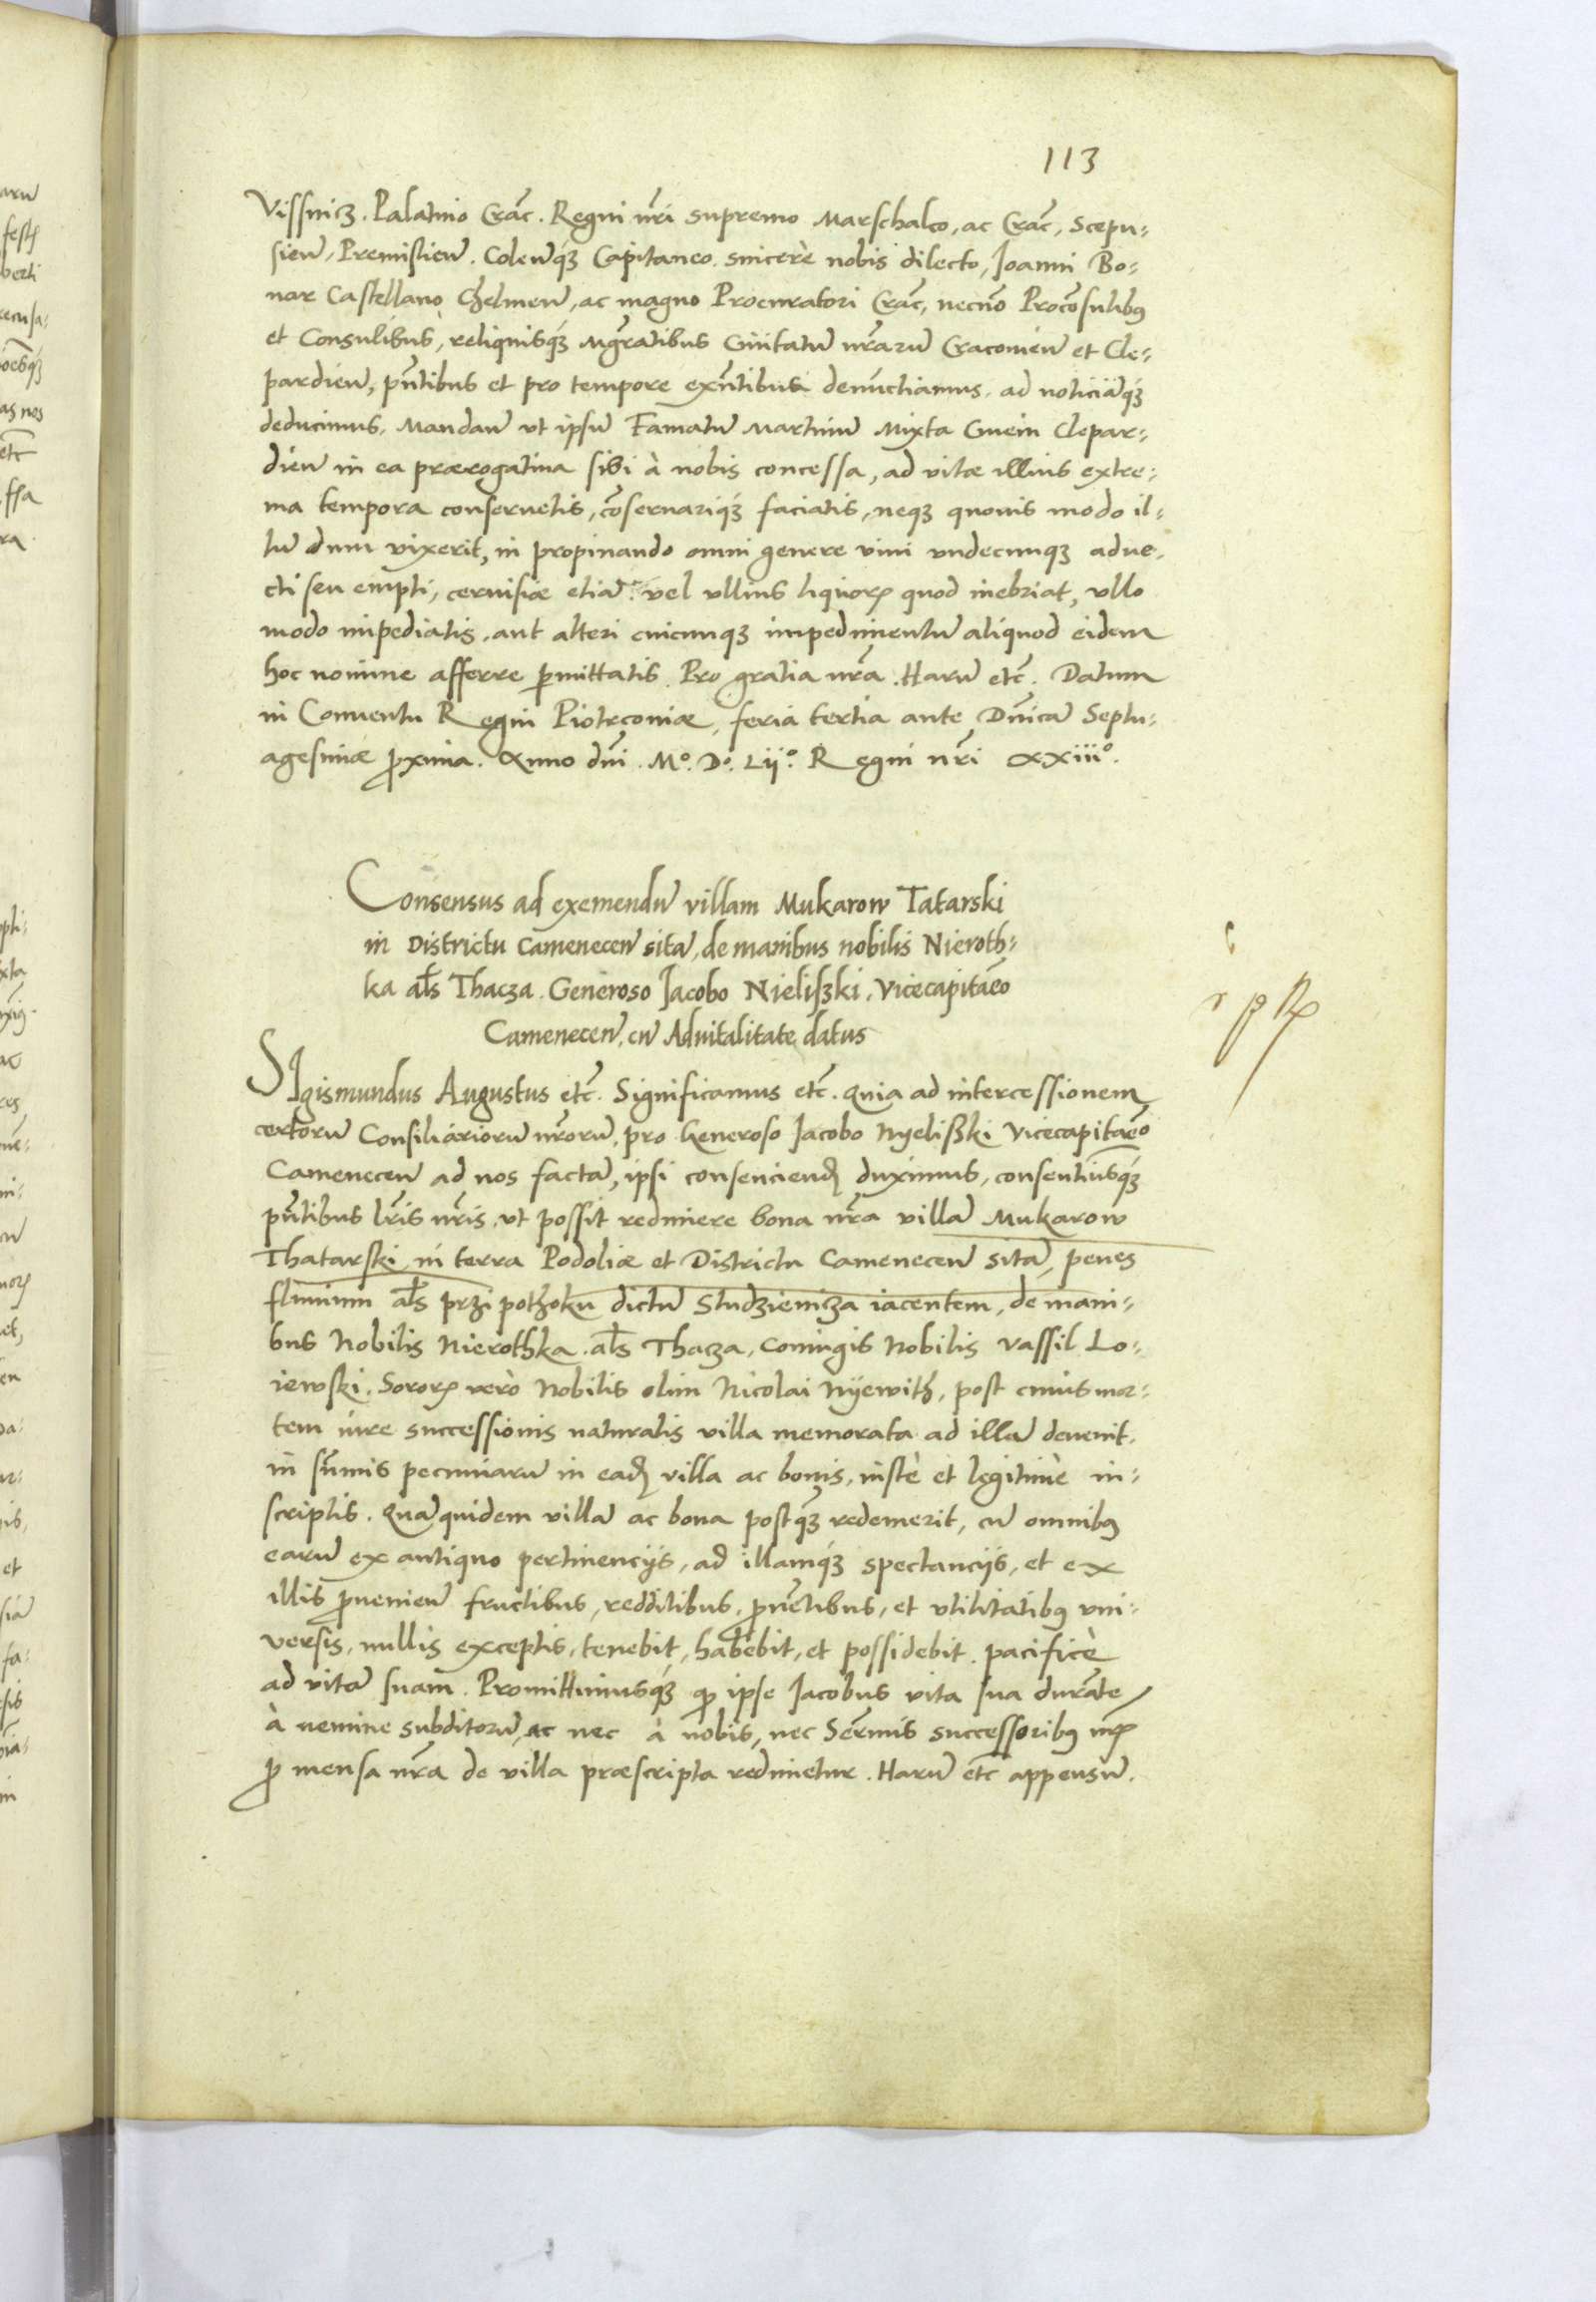 113
Vissnicz. Palatino Crac̃. Regni nr̃i supremo Marschalco, ac Crac̃, Scepu-
sien̄, Premislien̄. Colen̄q́ꝫ Capitaneo. sincerè nobis dilecto, Joanni Bo-
nar Castellano Chelmen̄, ac magno Procuratori Crac̃, necnō Procōsulibꝰ
et Consulibus, reliquisq́ꝫ Mg̃ratibus Ciuitatū nr̃arum Cracouien̄ et Cle-
pardien̄, pñtibus et pro tempore exñtibus denūctiamus. ad noticiāq́ꝫ
deducimus. Mandan̄ vt ipsū Famatū Martinū Mixta Ciuem Clepar-
dien̄ in ea prærogatiua sibi à nobis concessa, ad vitæ illius extre-
ma tempora conseruetis, cōseruariq́ꝫ faciatis, neqꝫ quouis modo il-
lū dum vixerit, in propinando omni genere vini vndecunqꝫ adue-
cti seu empti, ceruisiæ etiā vel ullius liquorꝭ quod inebriat, vllo
modo impediatis, aut alteri cuicunqꝫ impedimentū aliquod eidem
hoc nomine afferre ꝑmittatis. Pro gratia nr̃a. Harū etc̃. Datum
in Conuentu Regni Piotrcouiæ, feria tertia ante Dñicā Septu-
agesimæ ꝓxima. Anno dñi. M°. D°. Lij°. Regni nr̃i xxiii°.
Consensus ad exemendū villam Mukarow Tatarski
in Districtu Camenecen̄ sitā, de manibus nobilis Nieroth-
ka al̃s Thacza. Generoso Jacobo Nieliszki, Vicecapitāeo
Camenecen̄, cū Aduitalitate datus
Sigismundus Augustus etc̃. Significamus etc̃. Quia ad intercessionem
certorū Consiliariorū nr̃orū, pro Generoso Jacobo Nyeliszki Vicecapitāeo
Camenecen̄ ad nos factā, ipsi consenciendꝭ duximus, consentiūsq́ꝫ
pñtibus lr̃is nr̃is, vt possit redimere bona nr̃a villā Mukarow
Thatarski, in terra Podoliæ et Districtu Camenecen̄ sitā, penes
fluuium al̃s przi pothoku dictū Studzienicza iacentem, de mani-
bus Nobilis Nierothka al̃s Thacza, Coniugis Nobilis Vassil Lo-
iewski, Sororꝭ verò Nobilis olim Nicolai Nyewith, post cuius mor-
tem iure successionis naturalis villa memorata ad illā deuenit,
in sūmis pecuniarū in eadꝭ villa ac bonis, iustè et legitimè in-
scriptis. Quāquidem villā ac bona postq̃ꝫ redemerit, cū omnibꝰ
earū ex antiquo pertinencijs, ad illamq́ꝫ spectancijs, et ex
illis ꝓuenien̄ fructibus, redditibus, ꝓuētibus, et vtilitatibꝰ vni-
versis, nullis exceptis, tenebit, habebit, et possidebit pacificè
ad vitā suam. Promittimusq́ꝫ ꝙ ipse Jacobus vita sua durāte
à nemine subditorū, ac nec à nobis, nec Serm̃is successoribꝰ nr̃is
ꝓ mensa nr̃a de villa præscripta redimetur. Harū etc̃ appensū.